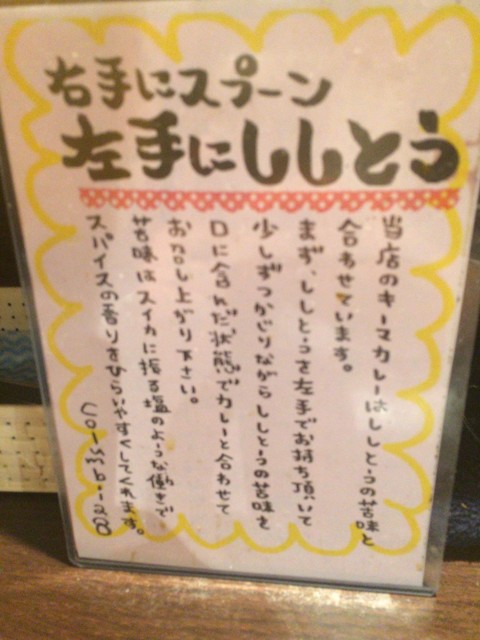 右手にスプーン
左手にししとう
当店のキーマカレーはししとうの苦味と
合わせています。
まず、ししとうを左手でお持ち頂いて
少しずつかじりながらししとうの苦味を
口に含んだ状態でカレーと合わせて
お召し上がり下さい。
苦味はスイカに振る塩のような働きで
スパイスの香りをひらいやすくしてくれます。
Columbia8